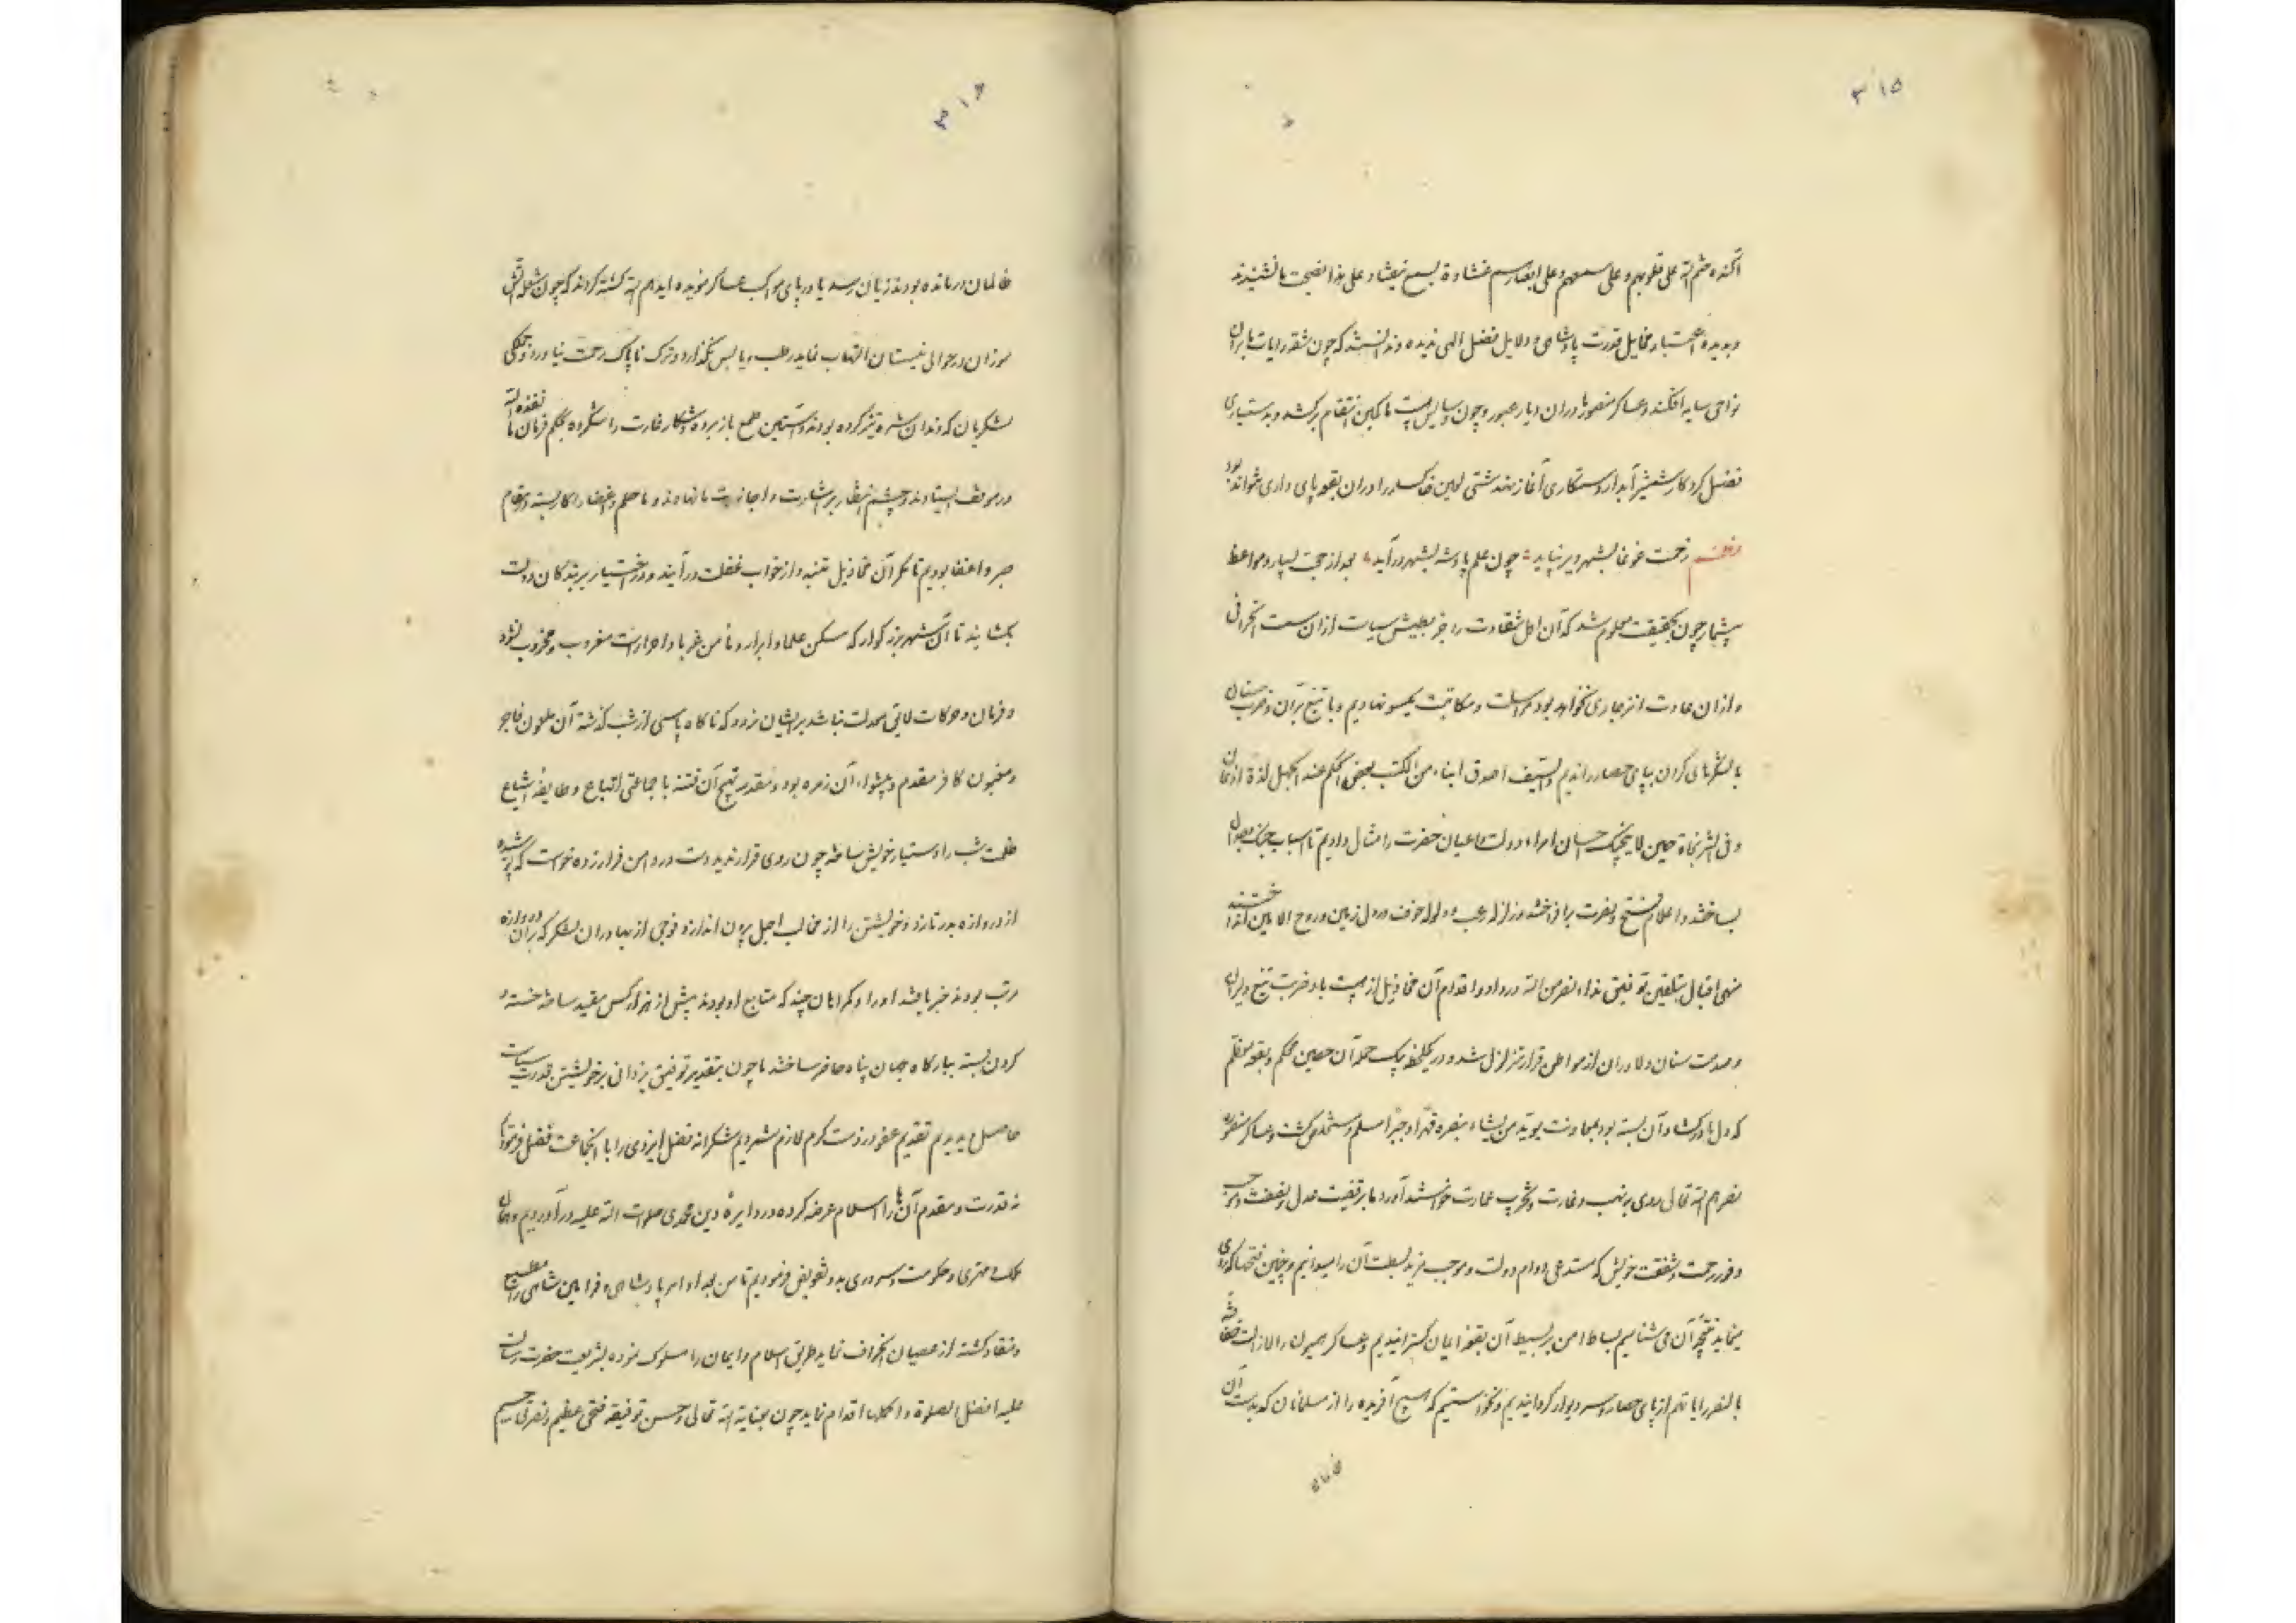 ۳۱۵
آکنده ختم الله علی قلوبهم و علی سمعهم و علی ابصارهم غشاوة بسمع نصیحت ما نشنیدند
و بدیده اعتبار مخایل قدرت پادشاهی و دلایل فضل الهی ندیده و ندانستند که چون شقه رایات ما بران
نواحی سایه افکند و عساکر منصوره ما دران دیار عبور و چون سایس هیبت ما کمین انتقام برکشد و بدستیاری
فضل کردکار شمشیر آبدار دستکاری آغاز نهد مشتی لعین خاکسار را دران بقعه پای داری نتواند بود
زحمت غوغا بشهر ویر نیاید چون علم پادشه بشهر درآید بعد از حجت بسیار و مواعظ
بیشمار چون بحقیقت معلوم شد که آن اهل شقاوت را جز ببطش سیاست ازان سمت انحرافی
و ازان عادت انزجاری نخواهد بود مراسلت و مکاتبت یکسو نهادیم و با تیغ بران و ضرب سنان
با لشکرهای کران بپای حصار راندیم و السیف اصدق انباء من الکتب بعض الحکم عند الجهل لذلة اذعان
و فی الشر نجاة حین لا ینجیک احسان امراء دولت و اعیان حضرت را مثال دادیم تا اسباب جنک
بساختند و اعلام فتح و نصرت برافراختند زلزله رعب و ولوله خوف در دل زمین و روح الامین
منهی اقبال بتلقین توفیق نداء نصر من الله در داد و اقدام آن مخاذیل از هیبت باد ضرب تیغ دلیران
و صدمت سنان دلاوران از مواطن قرار متزلزل شد و در یکلحظه بیک حمله آن حصین محکم و بقعه معظم
که دل ها در کشاد آن بسته بود بمعاونت یؤید من یشاء بنصره قهرا و جبرا مسلم و مستخلص کشت و عساکر منصوره
نصرهم الله تعالی روی بر نهب و غارت و تخریب عمارت خواستند آورد ما بر قضیت عدل و نصفت و موجب
وفور رحمت و شفقت خویش که مستدعی دوام دولت و موجب مزید بسطت آن را میدانیم و چنین فتحها که روی
مینماید نتیجه آن می شناسیم بساط امن بر بسیط آن بقعه ایمان کسترانیدیم و عساکر همیون را لازالت
بالنصر رایاتهم از پای حصار و سر دیوار کردانیدیم و نخواستیم که هیچ آفریده را از مسلمانان که بدست آن
۳۱۶
ظالمان درمانده بودند زیان رسد یا در پای مواکب عساکر مؤیده ایدهم الله کشته کردند که چون شعله آتش
سوزان در حوالی نیستان التهاب نماید رطب و یابس نکذارد و ترک ناپاک رحمت نیاورد و جملکی
لشکریان که دندان شره تیز کرده بودند و آستین طمع باز برده و شکار غارت را بحکم فرمان ما نفذه الله
در موقف ایستادند و چشم انتظار بر اشارت و اجازت ما نهادند و ما حلم و اغضا را کار بسته در مقام
صبر و اغضا بودیم تا مکر آن مخاذیل متنبه و از خواب غفلت درآیند و در باختیار بر بندکان دولت
بکشایند تا آن شهر بزرکوار که مسکن علما و ابرار و مأمن غربا و احرار است مخروب نشود
و فرمان و حرکات لایق معدلت نباشد بر ایشان نرود که ناکاه پاسی از شب کذشته آن ملعون فاجر
و مغبون کافر مقدم و پیشواء آن زمره بود و مقدمه تهیج آن فتنه با جماعتی اتباع و طایفه اشیاع
ظلمت شب را دستیار خویش ساخته چون روی قرار ندید دست در دامن فرار زده خواست که
از دروازه بدر تازد و خویشتن را از مخالب اجل برون اندازد فوجی از بهادران لشکر که بران دروازه
مرتب بودند خبر یافتند او را و کمراهان چند که متابع او بودند بیش از هزار کس مقید ساخته خسته و
کردن بسته ببارکاه جهان پناه حاضر ساختند ما چون بتقدیر توفیق یزدانی بر خویشتن قدرت سیاست
حاصل دیدیم تقدیم عفو در ذمت کرم لازم شمردیم شکرانه فضل ایزدی را با آنجماعت فضل فرمود
نه قدرت و مقدم آن ها را اسلام عرضه کرده در دایره دین محمدی صلوات الله علیه درآوردیم و همان
ملک و مهتری و حکومت و سروری بدو تفویض فرمودیم تا من بعد اوامر پادشاهی و فرامین شاهی را مطیع
و منقاد کشته از عصیان انحراف نماید طریق اسلام و ایمان را مسلوک نموده بشریعت حضرت رسالت
علیه افضل الصلوة و اکملها اقدام نماید چون بعنایة الله تعالی و حسن توفیقه فتحی عظیم و نصرتی جسیم